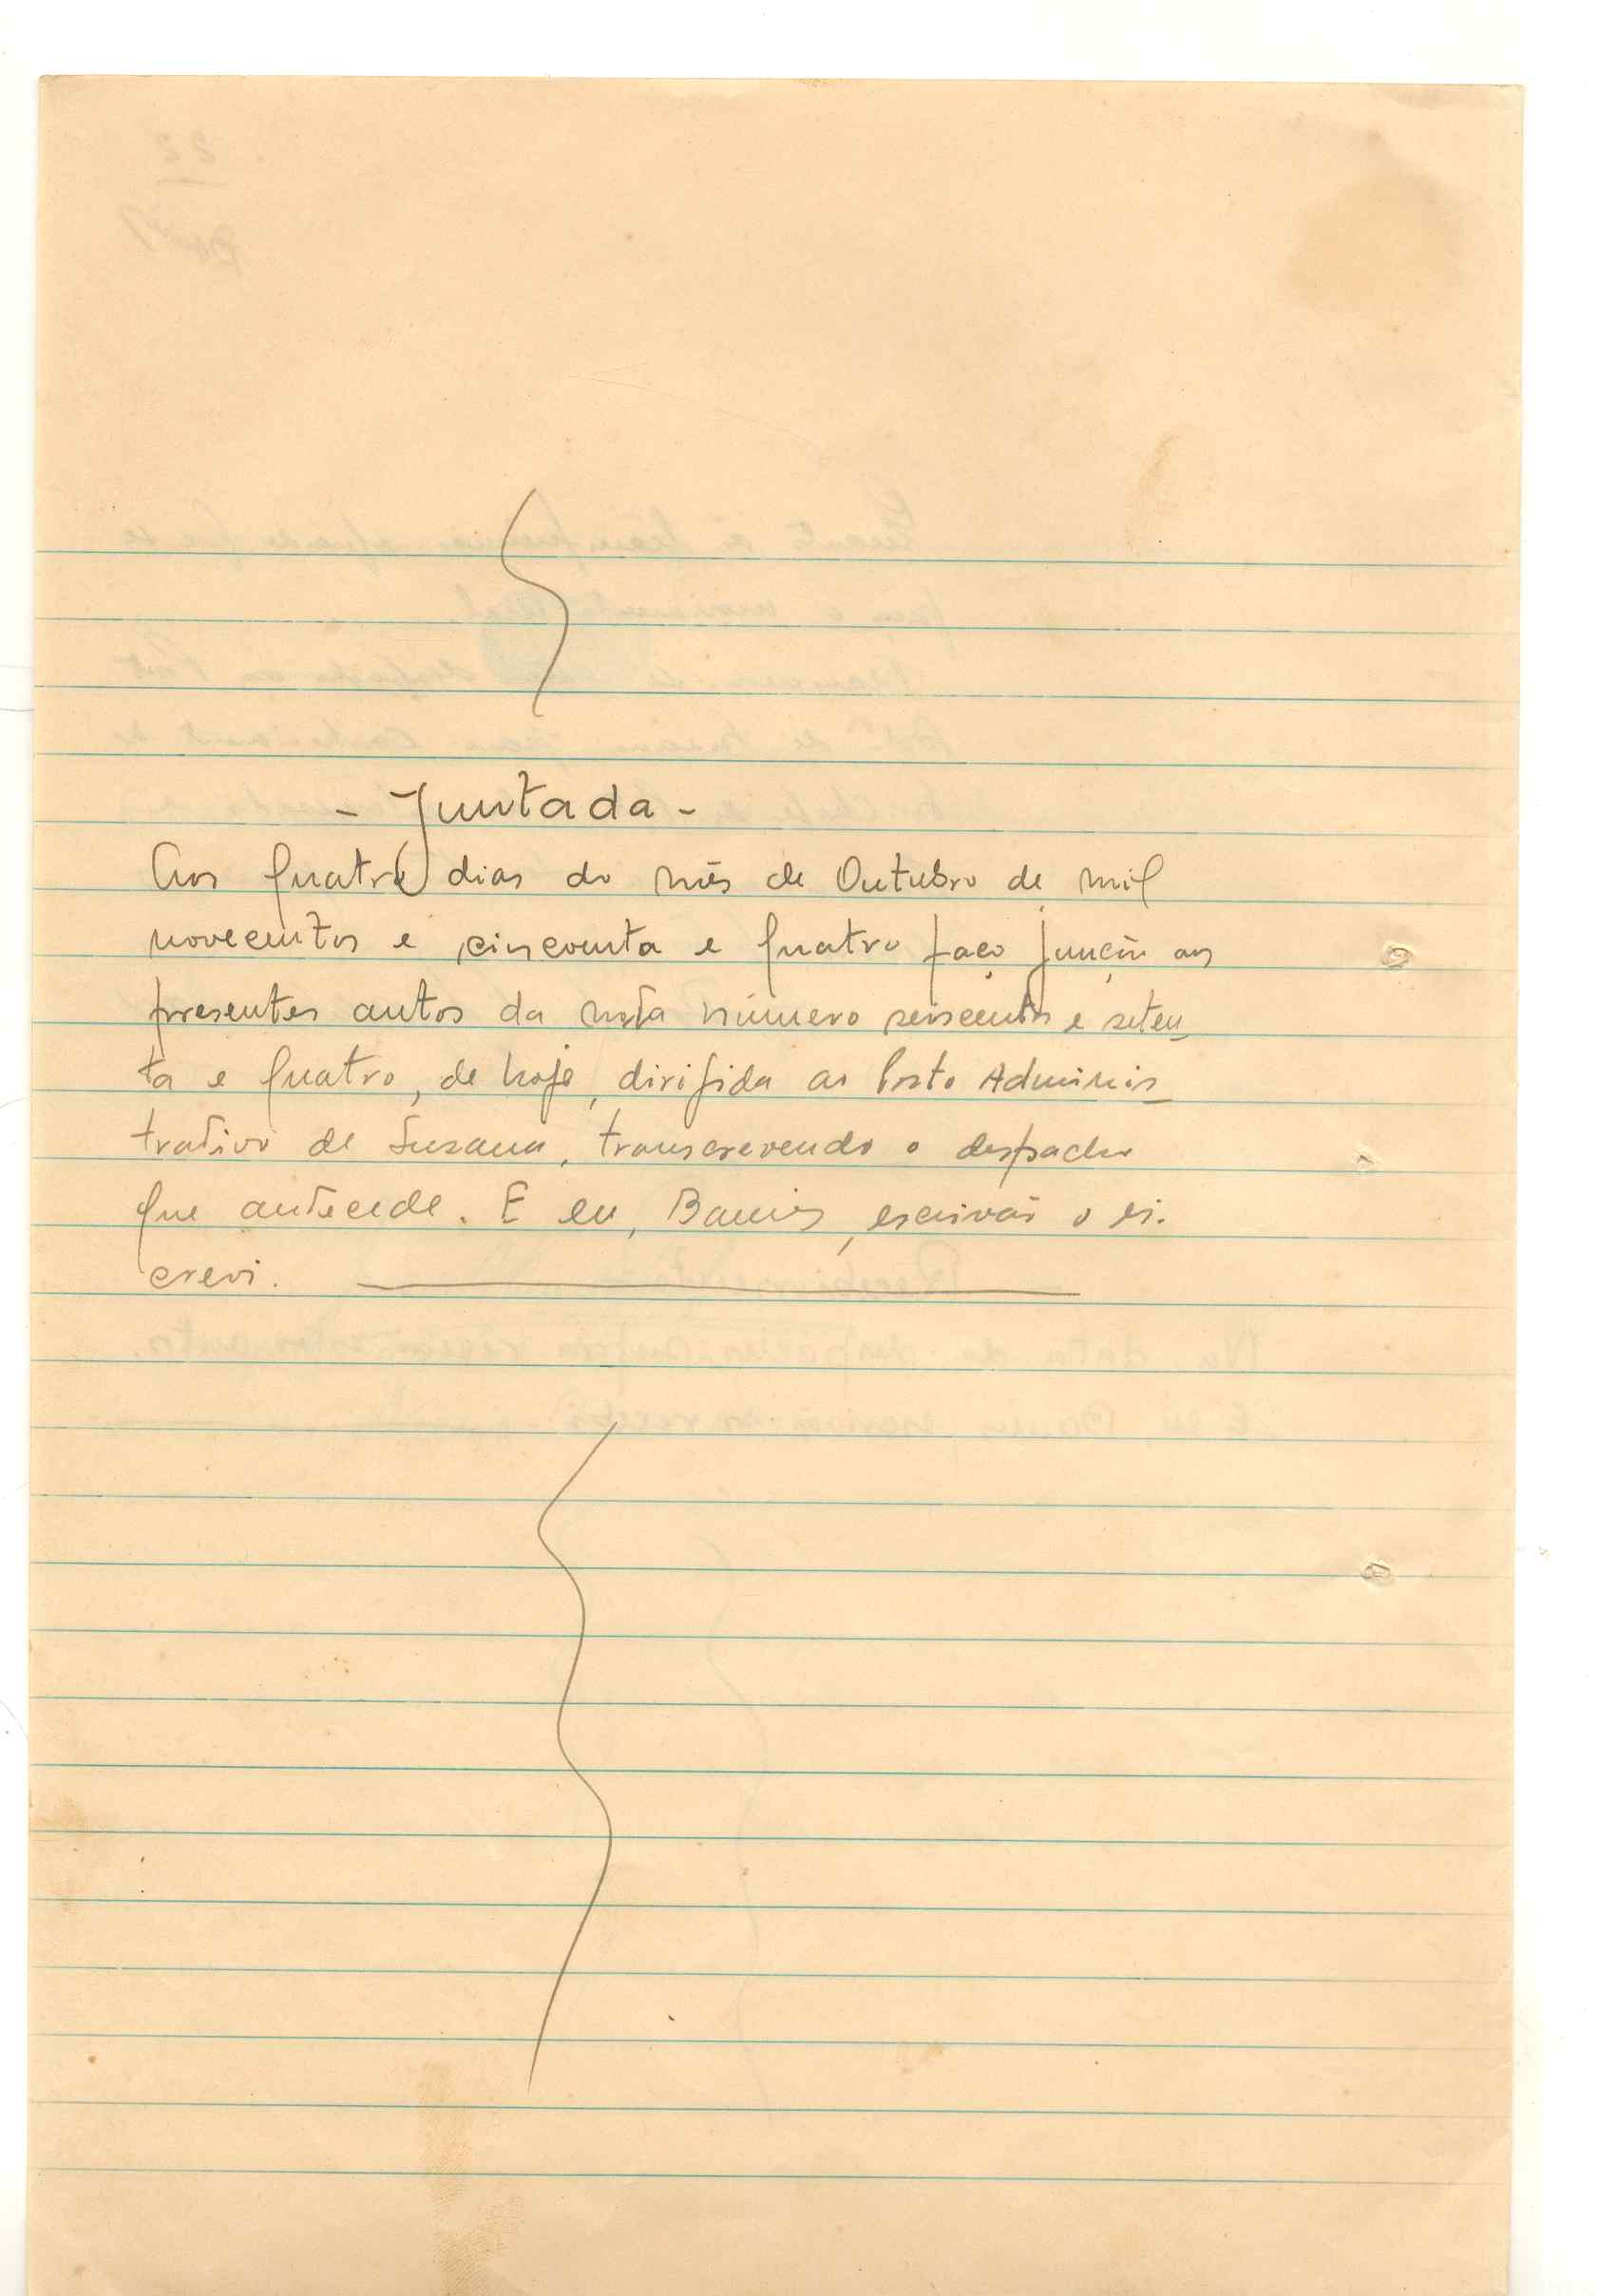 - Juntada -
Aos quatro dias do mês de Outubro de mil
novecentos e cincoenta e quatro faço junção aos
presentes autos da nota número seiscentos e seten_
ta e quatro, de hoje, dirigida ao Posto Adminis_
trativo de Susana, transcrevendo o despacho
que antecede. E eu, , escrivão o es-
crevi.